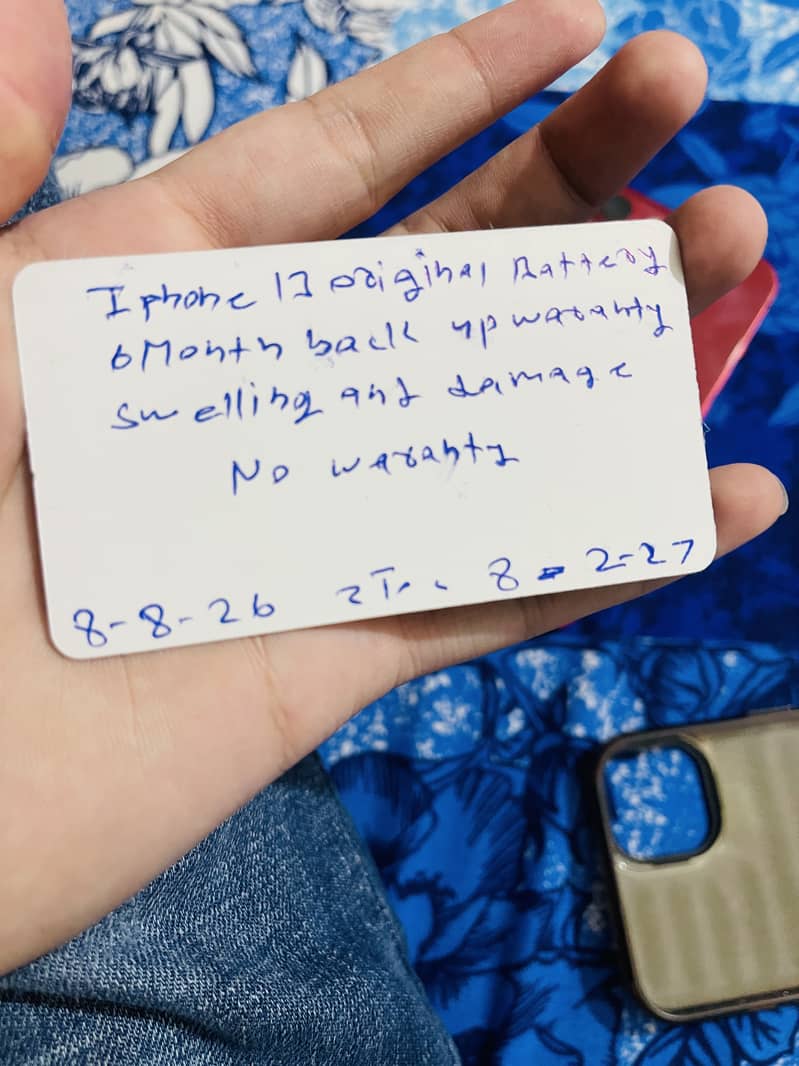 Iphone 13 original Battery
6 Month back up waranty
swelling and damage
No waranty
8-8-26 8-2-27